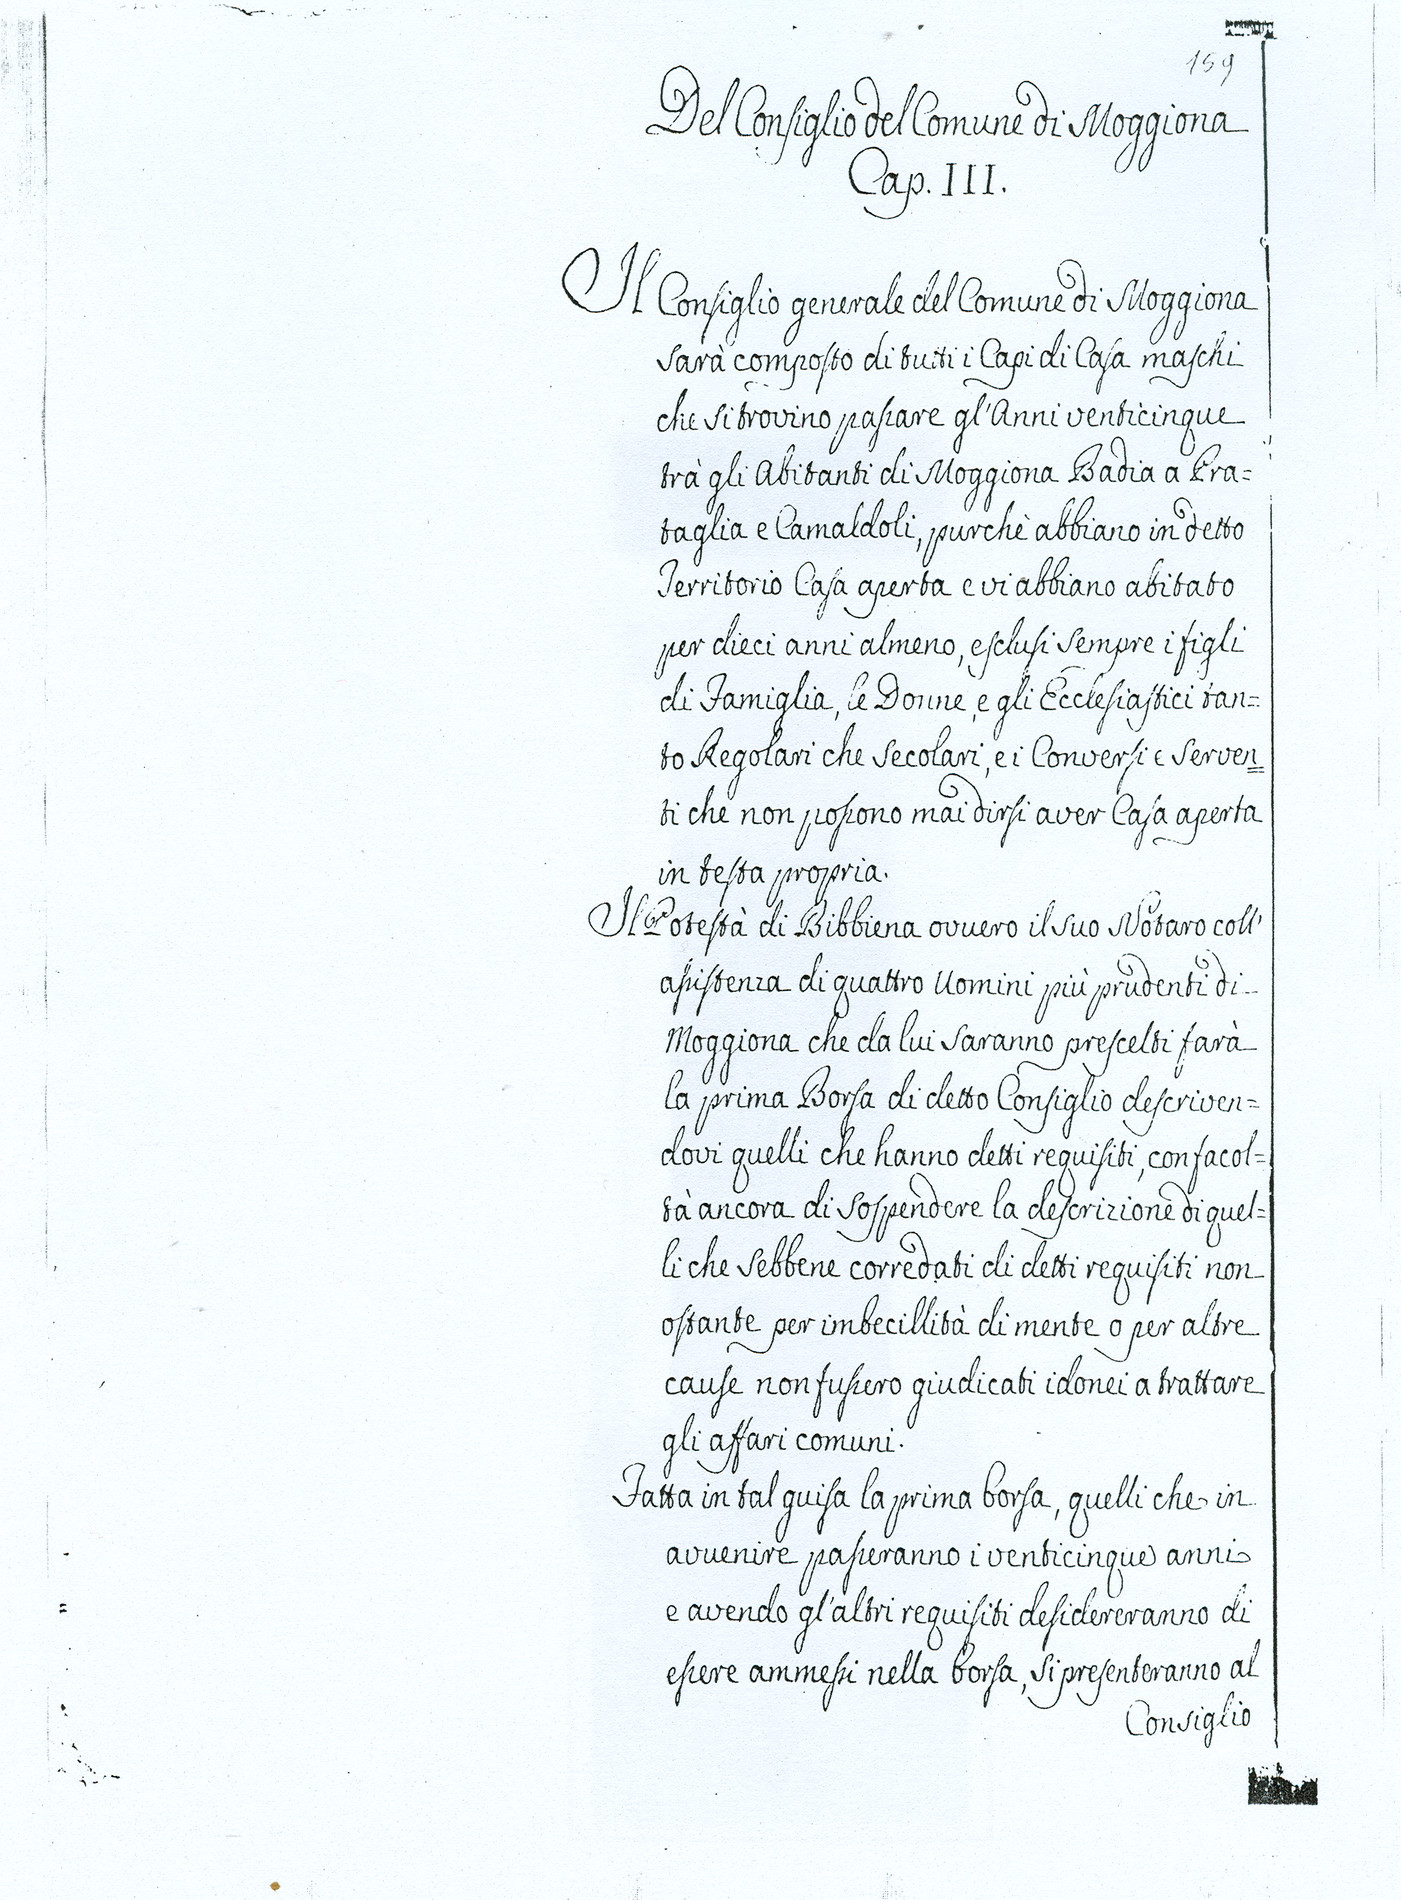 159
Del Consiglio del Comune di Moggiona
Cap. III.
Il Consiglio generale del Comune di Moggiona
sarà composto di tutti i Capi di Casa maschi
che si trovino passare gl'Anni venticinque
trà gli Abitanti di Moggiona Badia a Pra=
taglia e Camaldoli, purchè abbiano in detto
Territorio Casa aperta e vi abbiano abitato
per dieci anni almeno, esclusi sempre i figli
di Famiglia, le Donne, e gli Ecclesiastici tan=
to Regolari che Secolari, e i Conversi e Serven=
ti che non possono mai dirsi aver Casa aperta
in testa propria.
Il Potestà di Bibbiena ovvero il suo Notaro coll'
assistenza di quattro Uomini più prudenti di
Moggiona che da lui saranno prescelti farà
la prima Borsa di detto Consiglio descriven=
dovi quelli che hanno detti requisiti, con facol=
tà ancora di sospendere la descrizione di quel=
li che sebbene corredati di detti requisiti non
ostante per imbecillità di mente o per altre
cause non fussero giudicati idonei a trattare
gli affari comuni.
Fatta in tal guisa la prima borsa, quelli che in
avvenire passeranno i venticinque anni
e avendo gl'altri requisiti desidereranno di
essere ammessi nella borsa, si presenteranno al
Consiglio